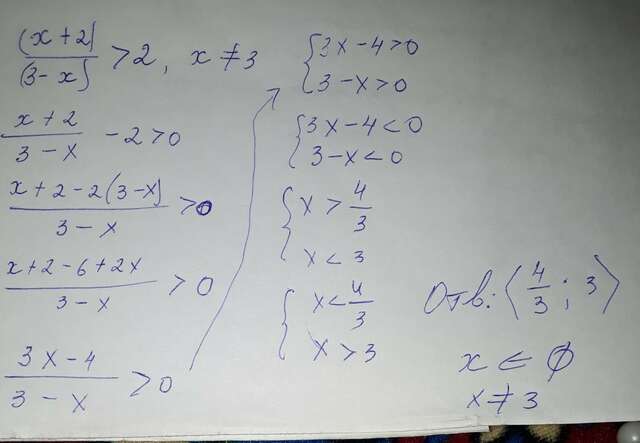 (x+2)/(3-x) > 2, x ≠ 3
x+2/3-x - 2 > 0
x+2-2(3-x)/3-x > 0
x+2-6+2x/3-x > 0
3x-4/3-x > 0
{3x-4>0
3-x>0
{3x-4<0
3-x<0
{x > 4/3
x < 3
{x < 4/3
x > 3
Отв: (4/3; 3)
x ∈ ∅
x ≠ 3